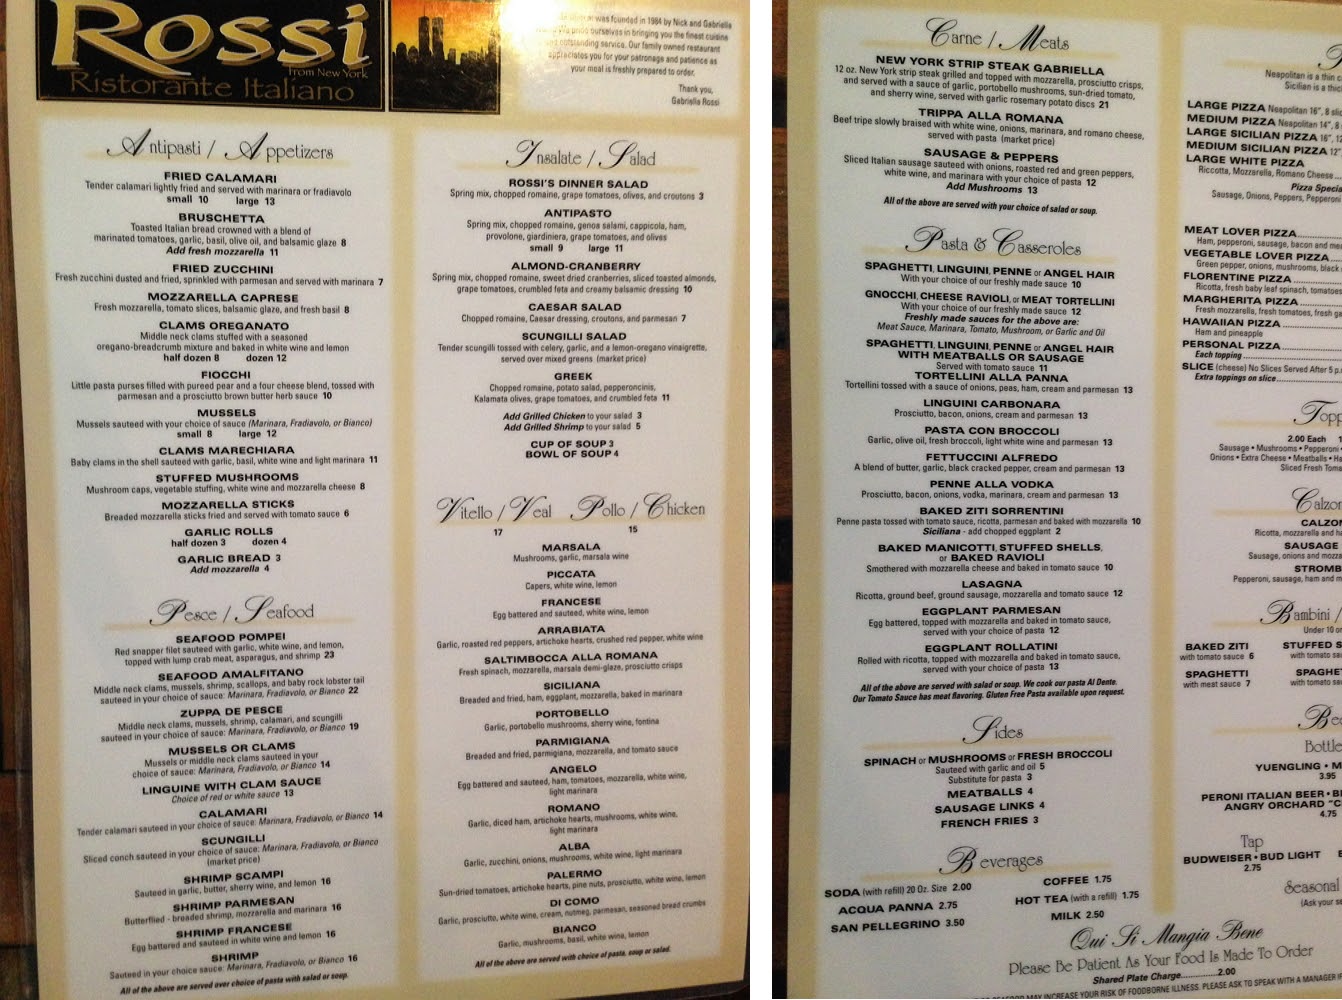 Rossi
from New York
Ristorante Italiano
was founded in 1984 by Nick and Gabriella
pride ourselves in bringing you the finest cuisine
outstanding service. Our family owned restaurant
appreciates you for your patronage and patience as
your meal is freshly prepared to order.
Thank you,
Gabriella Rossi
Antipasti / Appetizers
FRIED CALAMARI
Tender calamari lightly fried and served with marinara or fradiavolo
small 10 large 13
BRUSCHETTA
Toasted Italian bread crowned with a blend of
marinated tomatoes, garlic, basil, olive oil, and balsamic glaze 8
Add fresh mozzarella 11
FRIED ZUCCHINI
Fresh zucchini dusted and fried, sprinkled with parmesan and served with marinara 7
MOZZARELLA CAPRESE
Fresh mozzarella, tomato slices, balsamic glaze, and fresh basil 8
CLAMS OREGANATO
Middle neck clams stuffed with a seasoned
oregano-breadcrumb mixture and baked in white wine and lemon
half dozen 8 dozen 12
FIOCCHI
Little pasta purses filled with pureed pear and a four cheese blend, tossed with
parmesan and a prosciutto brown butter herb sauce 10
MUSSELS
Mussels sauteed with your choice of sauce (Marinara, Fradiavolo, or Bianco)
small 8 large 12
CLAMS MARECHIARA
Baby clams in the shell sauteed with garlic, basil, white wine and light marinara 11
STUFFED MUSHROOMS
Mushroom caps, vegetable stuffing, white wine and mozzarella cheese 8
MOZZARELLA STICKS
Breaded mozzarella sticks fried and served with tomato sauce 6
GARLIC ROLLS
half dozen 3 dozen 4
GARLIC BREAD 3
Add mozzarella 4
Pesce / Seafood
SEAFOOD POMPEI
Red snapper filet sauteed with garlic, white wine, and lemon,
topped with lump crab meat, asparagus, and shrimp 23
SEAFOOD AMALFITANO
Middle neck clams, mussels, shrimp, scallops, and baby rock lobster tail
sauteed in your choice of sauce: Marinara, Fradiavolo, or Bianco 22
ZUPPA DE PESCE
Middle neck clams, mussels, shrimp, calamari, and scungilli
sauteed in your choice of sauce: Marinara, Fradiavolo, or Bianco 19
MUSSELS OR CLAMS
Mussels or middle neck clams sauteed in your
choice of sauce: Marinara, Fradiavolo, or Bianco 14
LINGUINE WITH CLAM SAUCE
Choice of red or white sauce 13
CALAMARI
Tender calamari sauteed in your choice of sauce: Marinara, Fradiavolo, or Bianco 14
SCUNGILLI
Sliced conch sauteed in your choice of sauce: Marinara, Fradiavolo, or Bianco
(market price)
SHRIMP SCAMPI
Sauteed in garlic, butter, sherry wine, and lemon 16
SHRIMP PARMESAN
Butterflied - breaded shrimp, mozzarella and marinara 16
SHRIMP FRANCESE
Egg battered and sauteed in white wine and lemon 16
SHRIMP
Sauteed in your choice sauce: Marinara, Fradiavolo, or Bianco 16
All of the above are served over choice of pasta with salad or soup.
Insalate / Salad
ROSSI'S DINNER SALAD
Spring mix, chopped romaine, grape tomatoes, olives, and croutons 3
ANTIPASTO
Spring mix, chopped romaine, genoa salami, cappicola, ham,
provolone, giardiniera, grape tomatoes, and olives
small 9 large 11
ALMOND-CRANBERRY
Spring mix, chopped romaine, sweet dried cranberries, sliced toasted almonds,
grape tomatoes, crumbled feta and creamy balsamic dressing 10
CAESAR SALAD
Chopped romaine, Caesar dressing, croutons, and parmesan 7
SCUNGILLI SALAD
Tender scungilli tossed with celery, garlic, and a lemon-oregano vinaigrette,
served over mixed greens (market price)
GREEK
Chopped romaine, potato salad, pepperoncinis,
Kalamata olives, grape tomatoes, and crumbled feta 11
Add Grilled Chicken to your salad 3
Add Grilled Shrimp to your salad 5
CUP OF SOUP 3
BOWL OF SOUP 4
Vitello / Veal Pollo / Chicken
17 15
MARSALA
Mushrooms, garlic, marsala wine
PICCATA
Capers, white wine, lemon
FRANCESE
Egg battered and sauteed, white wine, lemon
ARRABIATA
Garlic, roasted red peppers, artichoke hearts, crushed red pepper, white wine
SALTIMBOCCA ALLA ROMANA
Fresh spinach, mozzarella, marsala demi-glaze, prosciutto crisps
SICILIANA
Breaded and fried, ham, eggplant, mozzarella, baked in marinara
PORTOBELLO
Garlic, portobello mushrooms, sherry wine, fontina
PARMIGIANA
Breaded and fried, parmigiana, mozzarella, and tomato sauce
ANGELO
Egg battered and sauteed, ham, tomatoes, mozzarella, white wine,
light marinara
ROMANO
Garlic, diced ham, artichoke hearts, mushrooms, white wine,
light marinara
ALBA
Garlic, zucchini, onions, mushrooms, white wine, light marinara
PALERMO
Sun-dried tomatoes, artichoke hearts, pine nuts, prosciutto, white wine, lemon
DI COMO
Garlic, prosciutto, white wine, cream, nutmeg, parmesan, seasoned bread crumbs
BIANCO
Garlic, mushrooms, basil, white wine, lemon
All of the above are served with choice of pasta, soup or salad.
Carne / Meats
NEW YORK STRIP STEAK GABRIELLA
12 oz. New York strip steak grilled and topped with mozzarella, prosciutto crisps,
and served with a sauce of garlic, portobello mushrooms, sun-dried tomato,
and sherry wine, served with garlic rosemary potato discs 21
TRIPPA ALLA ROMANA
Beef tripe slowly braised with white wine, onions, marinara, and romano cheese,
served with pasta (market price)
SAUSAGE & PEPPERS
Sliced Italian sausage sauteed with onions, roasted red and green peppers,
white wine, and marinara with your choice of pasta 12
Add Mushrooms 13
All of the above are served with your choice of salad or soup.
Pasta & Casseroles
SPAGHETTI, LINGUINI, PENNE or ANGEL HAIR
With your choice of our freshly made sauces 10
GNOCCHI, CHEESE RAVIOLI, or MEAT TORTELLINI
With your choice of our freshly made sauces 12
Freshly made sauces for the above are:
Meat Sauce, Marinara, Tomato, Mushroom, or Garlic and Oil
SPAGHETTI, LINGUINI, PENNE or ANGEL HAIR
WITH MEATBALLS OR SAUSAGE
Served with tomato sauce 11
TORTELLINI ALLA PANNA
Tortellini tossed with a sauce of onions, peas, ham, cream and parmesan 13
LINGUINI CARBONARA
Prosciutto, bacon, onions, cream and parmesan 13
PASTA CON BROCCOLI
Garlic, olive oil, fresh broccoli, light white wine and parmesan 13
FETTUCCINI ALFREDO
A blend of butter, garlic, black cracked pepper, cream and parmesan 13
PENNE ALLA VODKA
Prosciutto, bacon, onions, vodka, marinara, cream and parmesan 13
BAKED ZITI SORRENTINI
Penne pasta tossed with tomato sauce, ricotta, parmesan and baked with mozzarella 10
Siciliana - add chopped eggplant 2
BAKED MANICOTTI, STUFFED SHELLS,
or BAKED RAVIOLI
Smothered with mozzarella cheese and baked in tomato sauce 10
LASAGNA
Ricotta, ground beef, ground sausage, mozzarella and tomato sauce 12
EGGPLANT PARMESAN
Egg battered, topped with mozzarella and baked in tomato sauce,
served with your choice of pasta 12
EGGPLANT ROLLATINI
Rolled with ricotta, topped with mozzarella and baked in tomato sauce,
served with your choice of pasta 13
All of the above are served with salad or soup. We cook our pasta Al Dente.
Our Tomato Sauce has meat flavoring. Gluten Free Pasta available upon request.
Sides
SPINACH or MUSHROOMS or FRESH BROCCOLI
Sauteed with garlic and oil 5
Substitute for pasta 3
MEATBALLS 4
SAUSAGE LINKS 4
FRENCH FRIES 3
Beverages
SODA (with refill) 20 Oz. Size 2.00
ACQUA PANNA 2.75
SAN PELLEGRINO 3.50
COFFEE 1.75
HOT TEA (with a refill) 1.75
MILK 2.50
Neapolitan is a thin c
Sicilian is a thic
LARGE PIZZA Neapolitan 16", 8 slic
MEDIUM PIZZA Neapolitan 14", 8
LARGE SICILIAN PIZZA 16", 12
MEDIUM SICILIAN PIZZA 12"
LARGE WHITE PIZZA
Riccotta, Mozzarella, Romano Cheese
Pizza Specia
Sausage, Onions, Peppers, Pepperoni
MEAT LOVER PIZZA
Ham, pepperoni, sausage, bacon and mea
VEGETABLE LOVER PIZZA
Green pepper, onions, mushrooms, black
FLORENTINE PIZZA
Ricotta, fresh baby leaf spinach, tomatoes
MARGHERITA PIZZA
Fresh mozzarella, fresh tomatoes, fresh ga
HAWAIIAN PIZZA
Ham and pineapple
PERSONAL PIZZA
Each topping
SLICE (cheese) No Slices Served After 5 p.m
Extra toppings on slice
Topp
2.00 Each 1
Sausage • Mushrooms • Pepperoni •
Onions • Extra Cheese • Meatballs • Ha
Sliced Fresh Toma
Calzon
CALZO
Ricotta, mozzarella and ha
SAUSAGE
Sausage, onions and mozza
STROMB
Pepperoni, sausage, ham and m
Bambini /
Under 10 or
BAKED ZITI
with tomato sauce 6
STUFFED S
with tomato sa
SPAGHETTI
with meat sauce 7
SPAGHE
with tomato sau
Bee
Bottle
YUENGLING • M
3.95
PERONI ITALIAN BEER • B
ANGRY ORCHARD "C
4.75
Tap
BUDWEISER • BUD LIGHT
2.75
Seasonal
(Ask your se
Qui Si Mangia Bene
Please Be Patient As Your Food Is Made To Order
Shared Plate Charge..............2.00
SEAFOOD MAY INCREASE YOUR RISK OF FOODBORNE ILLNESS. PLEASE ASK TO SPEAK WITH A MANAGER